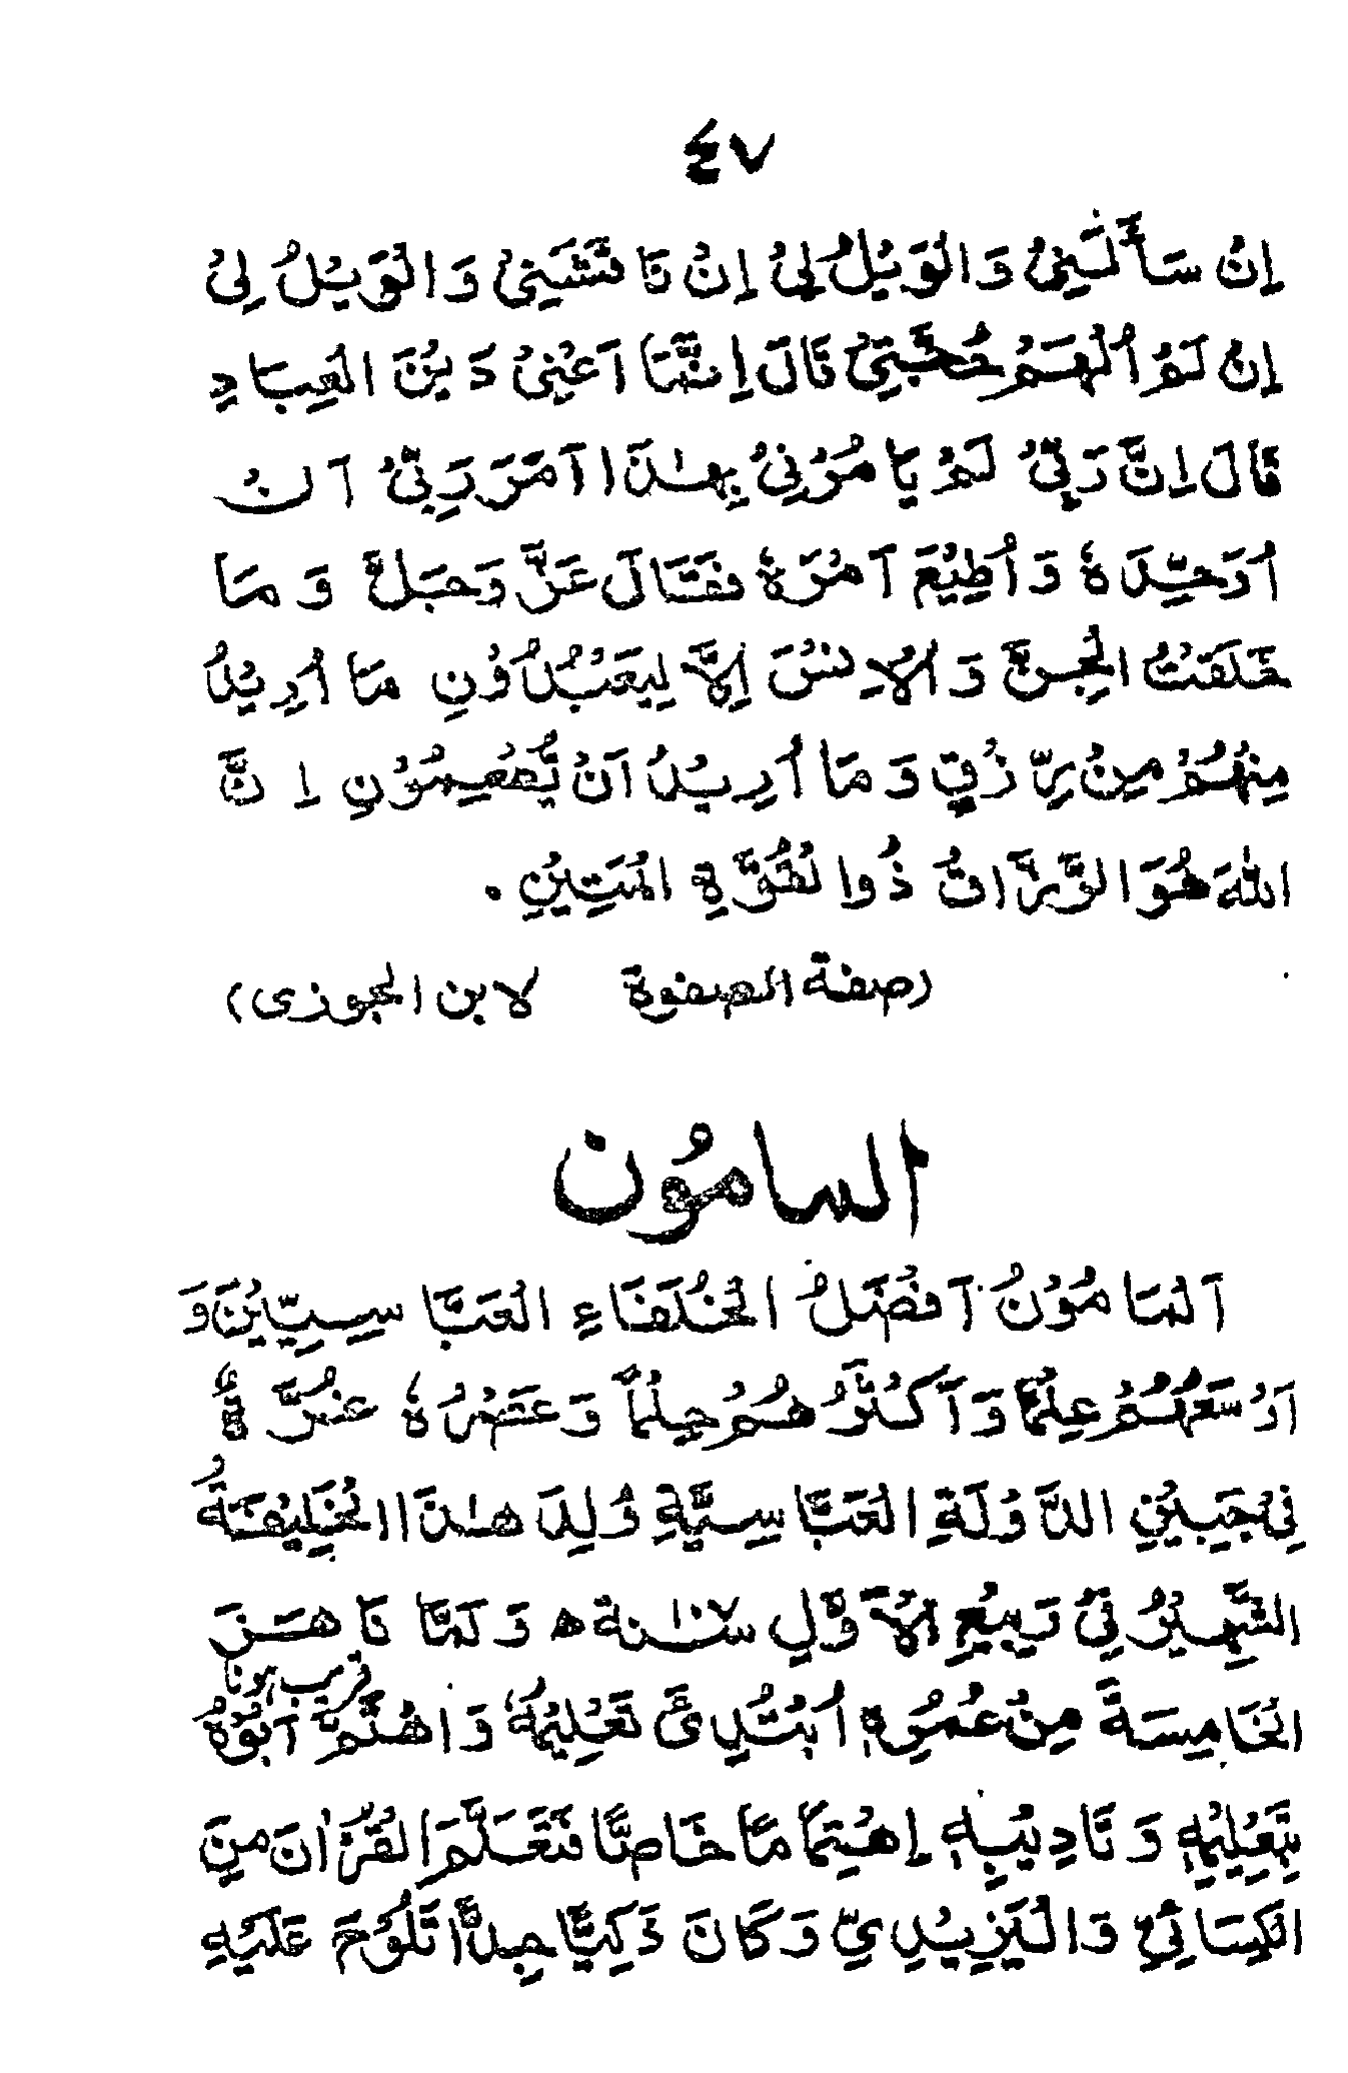 ٤٧
اِنْ سَأَلَنِیْ وَالْوَیْلُ لِیْ اِنْ نَاقَشَنِیْ وَالْوَیْلُ لِیْ
اِنْ لَمْ اُلْهَمْ حُجَّتِیْ قَالَ اِنَّمَا اَعْنِیْ دَیْنَ الْعِبَادِ
قَالَ اِنَّ رَبِّیْ لَمْ یَامُرْنِیْ بِهٰذَا اَمَرَ رَبِّیْ اَنْ
اُوَحِّدَهٗ وَ اُطِیْعَ اَمْرَهٗ فَقَالَ عَزَّ وَجَلَّ وَ مَا
خَلَقْتُ الْجِنَّ وَ الْاِنْسَ اِلَّا لِیَعْبُدُوْنِ مَا اُرِیْدُ
مِنْهُمْ مِنْ رِّزْقٍ وَ مَا اُرِیْدُ اَنْ یُّطْعِمُوْنِ اِنَّ
اللّٰهَ هُوَ الرَّزَّاقُ ذُوا لْقُوَّةِ الْمَتِیْنِ .
(صفة الصفوة لابن الجوزی)
المامُون
اَلْمَامُوْنُ اَفْضَلُ الْخُلَفَاءِ الْعَبَّاسِیِّیْنَ وَ
اَوْسَعُهُمْ عِلْمًا وَ اَكْثَرُ هُمْ حِلْمًا وَ عَصْرُهٗ غُرَّةٌ
فِیْ جَبِیْنِ الدَّوْلَةِ الْعَبَّاسِیَّةِ وُلِدَ هٰذَا الْخَلِیْفَةُ
الشَّهِیْرُ فِیْ رَبِیْعِ الْاَوَّلِ سنة ١٧٠ ه وَ لَمَّا نَاهَزَ
قریب ہونا
الْخَامِسَةَ مِنْ عُمُرِهٖ اُبْتُدِئَ تَعْلِیْمُهٗ وَ اهْتَمَّ اَبُوْهُ
بِتَعْلِیْمِهٖ وَ تَادِیْبِهٖ اِهْتِمَامًا خَاصًّا فَتَعَلَّمَ الْقُرْاٰنَ مِنَ
الْكِسَائِیِّ وَ الْیَزِیْدِیِّ وَ كَانَ ذَكِیًّا جِدًّا تَلُوْحُ عَلَیْهِ